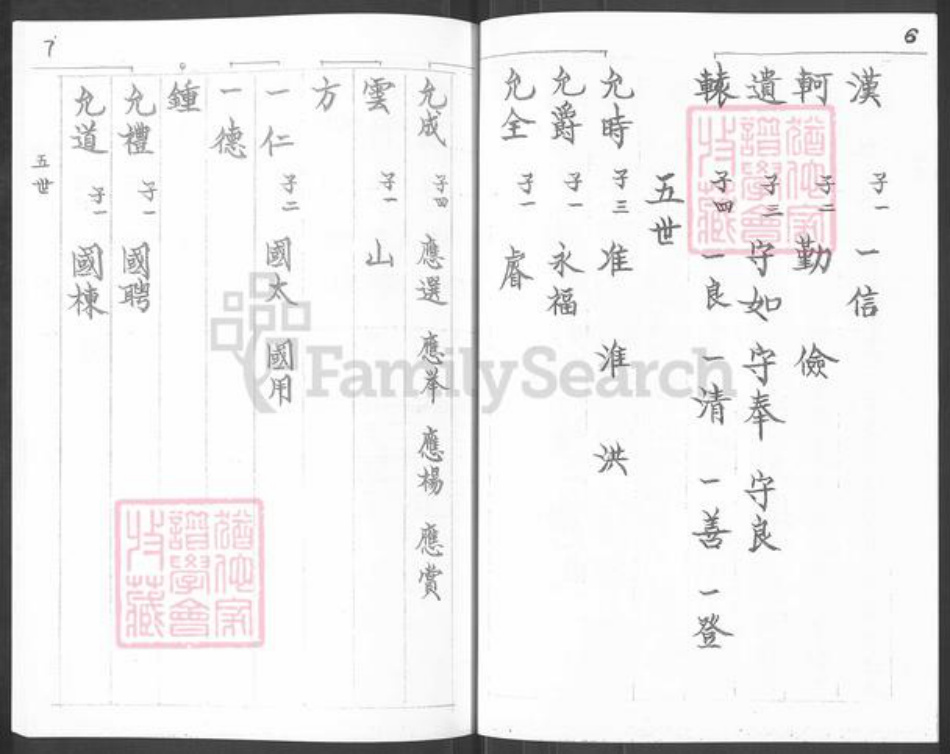 6
漢 子一 一信
軻 子二 勤 儉
遺 子三 守如 守奉 守良
轅 子四 一良 一清 一善 一登
五世
允時 子三 准 淮 洪
允爵 子一 永福
允全 子一 睿
7
允成 子四 應選 應举 應楊 應賞
雲 子一 山
方
一仁 子二 國太 國用
一德
鍾
允禮 子一 國聘
允道 子一 國棟
五世
FamilySearch